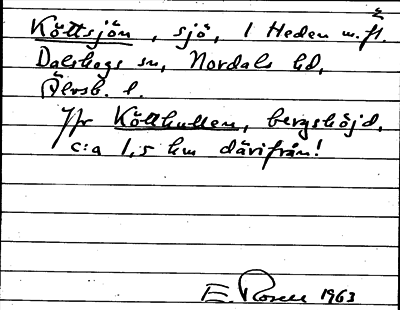 Köttsjön, sjö, 1 Heden m.fl.
Dalskogs sn, Nordals hd,
Älvsb. l.
Jfr Köttkullen, bergshöjd,
c:a 1,5 km därifrån!
E. Rosell 1963